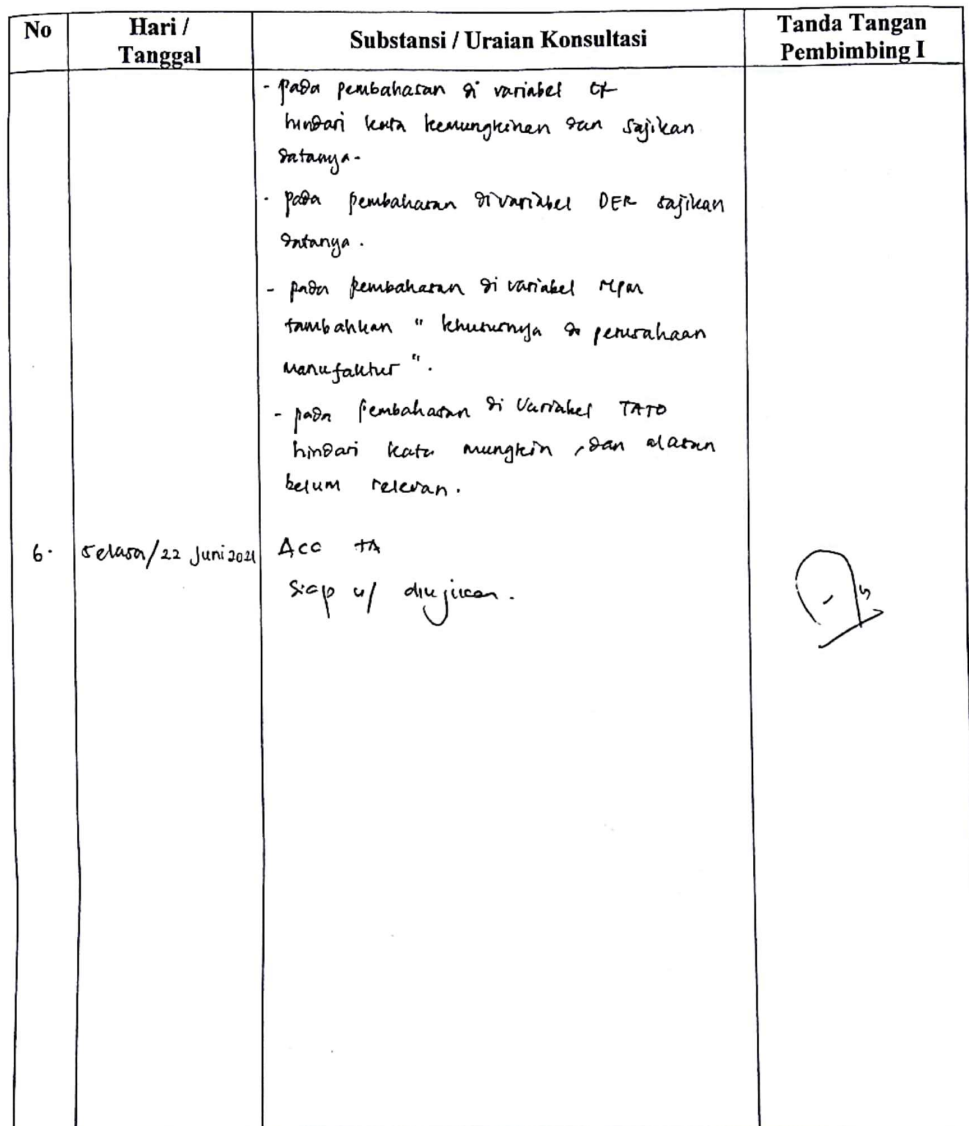 No Hari / Tanggal Substansi / Uraian Konsultasi Tanda Tangan Pembimbing I
- pada pembahasan di variabel CR
hindari kata kemungkinan dan sajikan
datanya.
- pada pembahasan divariabel DER sajikan
datanya.
- pada pembahasan di variabel NPM
tambahkan " khususnya di perusahaan
manufaktur ".
- pada pembahasan di variabel TATO
hindari kata mungkin, dan alasan
belum relevan.
6. Selasa/22 Juni 2021 Acc TA
Siap u/ diujikan.